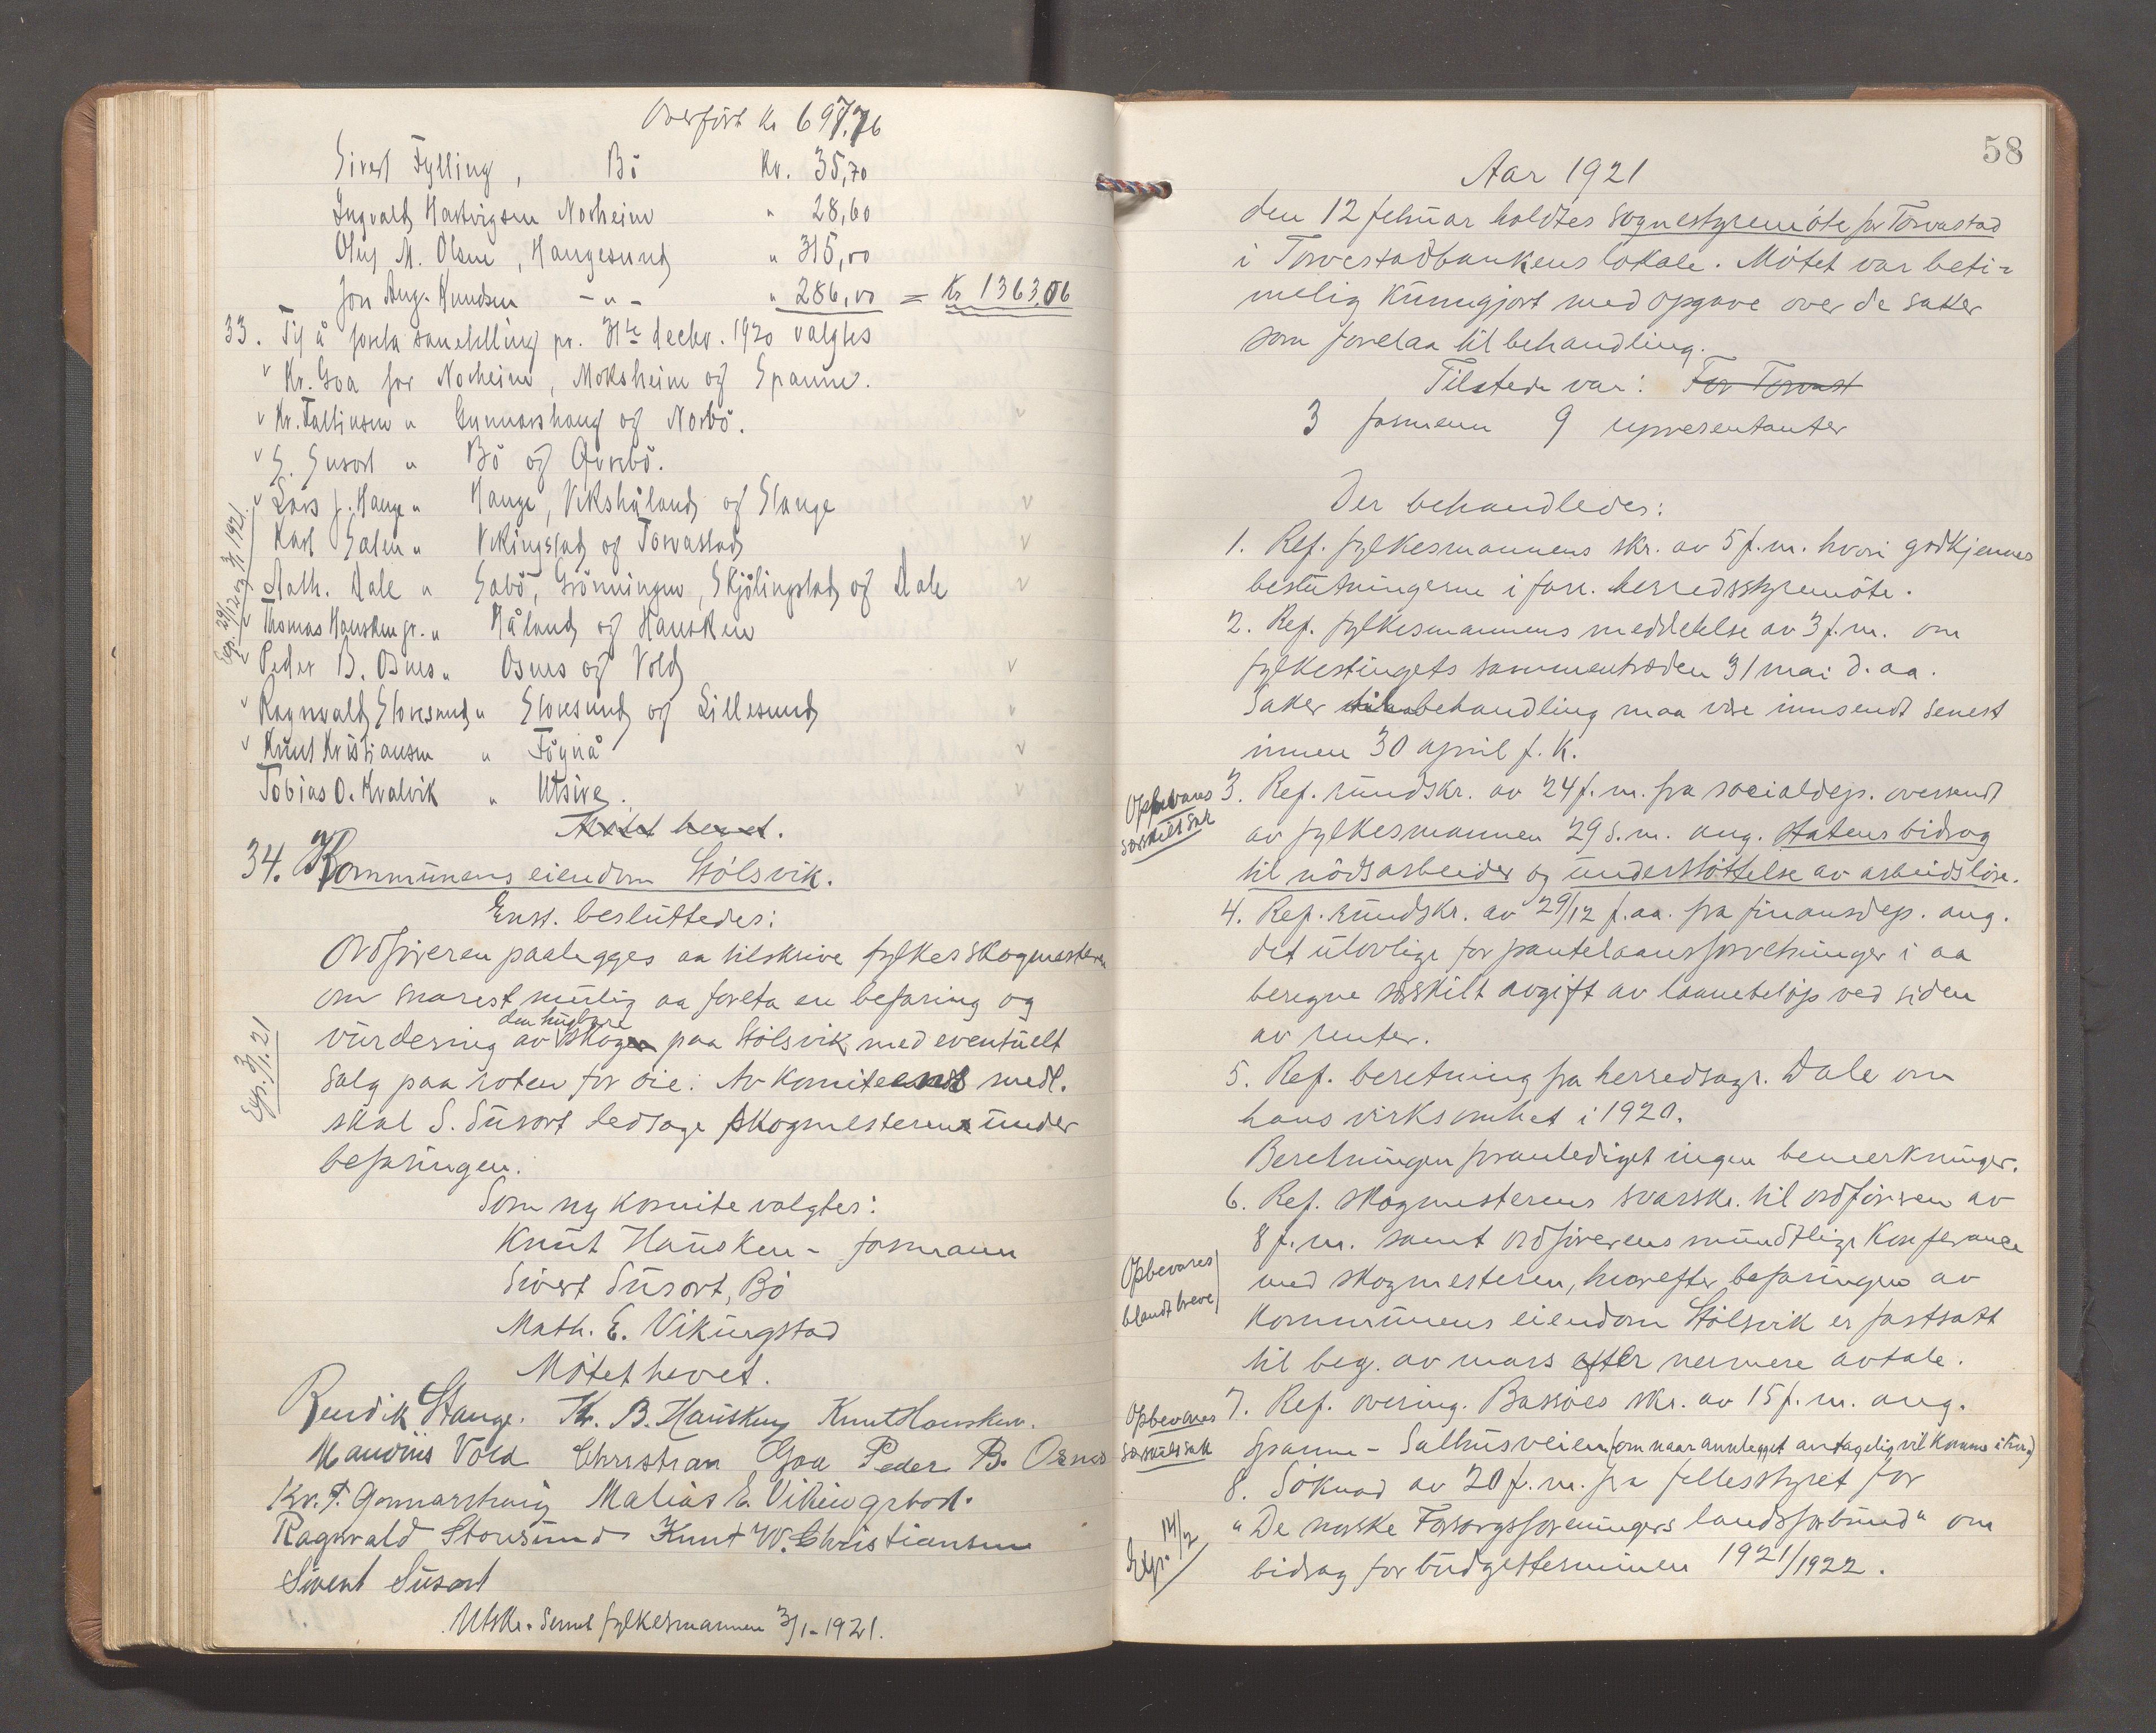 Overført kr 697,76
Sivert Fylling, Bö kr. 35,70
Ingvald Hartvigsen Norheim " 28,60
Oluf M. Olsen, Haugesund " 315,00
Jon Aug. Knudsen -"- " 286,00 = Kr 1363,06
33. Til å foreta pr. 31te decbr. 1920 valgtes
v Kr. Goa for Norheim, Moksheim og Spanne.
v Kr. Fallinsen " Gunnarshaug og Norbö.
v S. Susort " Bö og Övrebö.
v Lars J. Hauge " Hauge, Vikshåland og Stange v
Karl Salen " Vikingstad og Torvastad v
v Math. Dale " Sabö, Grönningen, Skjölingstad og Dale v
v Thomas Hausken jr. " Håland og Hausken
v Peder B. Osnes " Osnes og Vold v
v Ragnvald Storesund " Storesund og Lillesund v
v Knut Kristiansen " Föynå v
Tobias O. Kvalvik " Utsire.
Exp. 29/12 20 og 3/1 1921.
Mötet hevet.
34. Kommunens eiendom Stölsvik.
Enst. besluttedes:
Ordföreren paalegges aa tilskrive fylkesskogmesteren
om snarest mulig aa foreta en befaring og
den hugbare
vurdering av skogen paa Stölsvik med eventuelt
salg paa roten for öie. Av komiteens medl.
skal S. Susort ledsage skogmesteren under
befaringen.
Exp. 3/1 21
Som ny komite valgtes:
Knut Hausken - formann
Sivert Susort, Bö
Math. E. Vikingstad
Mötet hevet.
Bendik Stange. Th. B. Hausken Knut Hausken.
Mauritis Vold Christian Goa Peder B. Osnes
Kr. F. Gonnarshaug Matias E. Vikingstad.
Ragnvald Storesund Knut W. Christiansen
Sivert Susort
Utskr. sendt fylkesmannen 3/1-1921.
58
Aar 1921
den 12 februar holdtes sognestyremöte for Torvastad
i Torvestadbankens lokale. Mötet var beti-
melig kunngjort med opgave over de saker
som forelaa til behandling.
Tilstede var: For Torvast
3 formenn 9 representanter
Der behandledes:
1. Ref. fylkesmannens skr. av 5 f.m. hvori godkjennes
beslutningerne i forr. herredsstyremöte.
2. Ref. fylkesmannens meddelelse av 3 f.m. om
fylkestingets sammentræden 31 mai d.aa.
Saker til behandling maa være innsendt senest
innen 30 april f.k.
Opbevares
særskilt sak
3. Ref. rundskr. av 24 f.m. fra socialdep. oversendt
av fylkesmannen 29 s.m. ang. statens bidrag
til nödsarbeider og understöttelse av arbeidslöse.
4. Ref. rundskr. av 29/12 f.aa. fra finansdep. ang.
det ulovlige for pantelaansforretninger i aa
beregne særskilt avgift av laanebelöp ved siden
av renter.
5. Ref. beretning fra herredsagr. Dale om
hans virksomhet i 1920.
Beretningen foranlediget ingen bemerkninger.
6. Ref. skogmesterens svarskr. til ordföreren av
8 f.m. samt ordförerens mundtlige konferance
Opbevares
blandt breve
med skogmesteren, hvorefter befaringen av
kommunens eiendom Stölsvik er fastsatt
til beg. av mars efter nermere avtale.
Opbevares
særskilt sak
7. Ref. overing. Bassöes skr. av 15 f.m. ang.
Spanne - Salhusveien (om naar annlegget antagelig vil komme i gang)
8. Söknad av 20 f.m. fra fellesstyret for
Exp. 14/2
"De norske Forsorgsforeningers landsforbund" om
bidrag for budgetterminen 1921/1922.